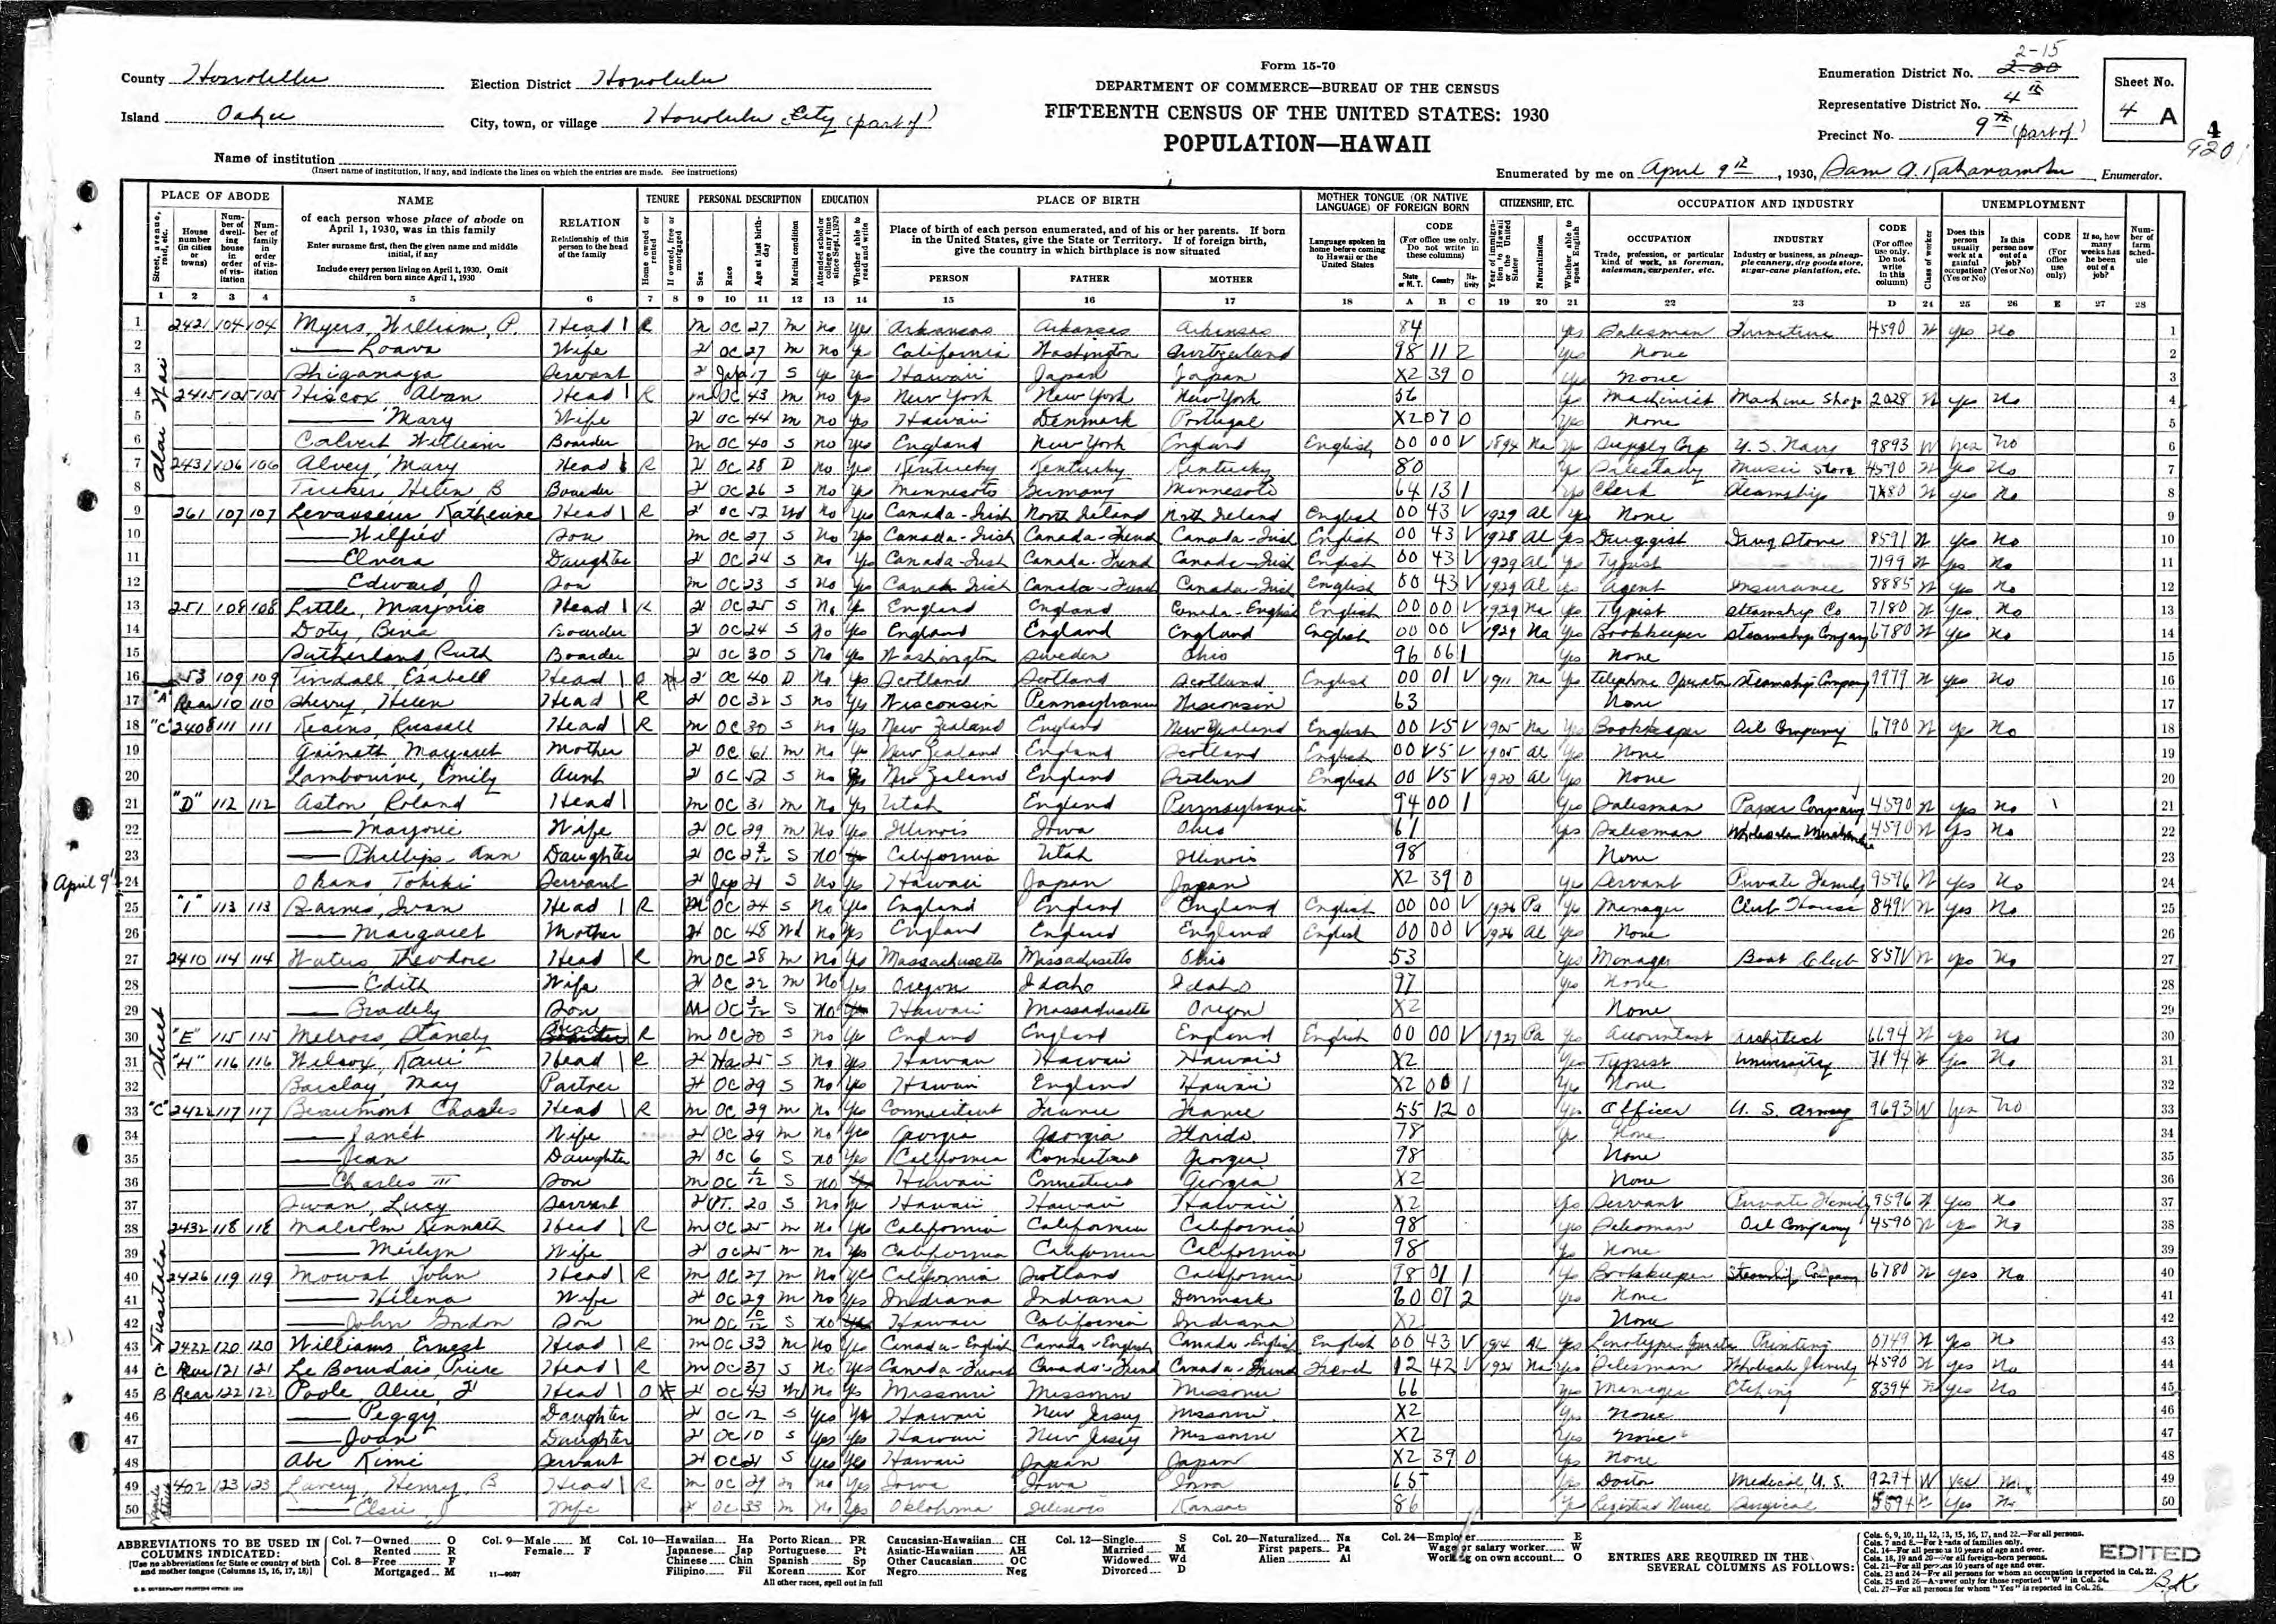 2-15
Form 15-70
County Honolulu Election District Honolulu DEPARTMENT OF COMMERCE—BUREAU OF THE CENSUS Enumeration District No. 2-20 Sheet No.
Island Oahu City, town, or village Honolulu City (part of) FIFTEENTH CENSUS OF THE UNITED STATES: 1930 Representative District No. 4th 4 A
POPULATION—HAWAII Precinct No. 9th (part of) 4
Name of institution 9201
(Insert name of institution, if any, and indicate the lines on which the entries are made. See instructions) Enumerated by me on April 9th, 1930, Sam A. Kahanamoku, Enumerator.
PLACE OF ABODE NAME RELATION TENURE PERSONAL DESCRIPTION EDUCATION PLACE OF BIRTH MOTHER TONGUE (OR NATIVE LANGUAGE) OF FOREIGN BORN CITIZENSHIP, ETC. OCCUPATION AND INDUSTRY UNEMPLOYMENT
of each person whose place of abode on April 1, 1930, was in this family
Enter surname first, then the given name and middle initial, if any
Include every person living on April 1, 1930. Omit children born since April 1, 1930
Relationship of this person to the head of the family
Place of birth of each person enumerated, and of his or her parents. If born in the United States, give the State or Territory. If of foreign birth, give the country in which birthplace is now situated
PERSON FATHER MOTHER
1 2 3 4 5 6 7 8 9 10 11 12 13 14 15 16 17 18 A B C 19 20 21 22 23 D 24 25 26 E 27 28
1 2421 104 104 Myers, William, P. Head R M OC 27 M No Yes Arkansas Arkansas Arkansas 84 Yes Salesman Furniture 4590 W Yes No 1
2 Wife F OC 27 M No Yes California Washington Switzerland 98 11 2 Yes None 2
3 Shiganaga Servant F Jap 17 S Yes Yes Hawaii Japan Japan X2 39 0 Yes None 3
4 2415 105 105 Hiscox Alvan Head R M OC 43 M No Yes New York New York New York 56 Yes Machinist Machine Shop 2028 W Yes No 4
5 Mary Wife F OC 44 M No Yes Hawaii Denmark Portugal X2 07 0 Yes None 5
6 Calvert William Boarder M OC 40 S No Yes England New York England English 00 00 V 1894 Na Yes Supply Corp U. S. Navy 9893 W Yes No 6
7 2431 106 106 Alvey, Mary Head R F OC 28 D No Yes Kentucky Kentucky Kentucky 80 Yes Saleslady Music Store 4590 W Yes No 7
8 Tucker, Helen, B Boarder F OC 26 S No Yes Minnesota Germany Minnesota 64 13 1 Yes Clerk Steamship 7180 W Yes No 8
9 261 107 107 Levasseur, Katherine Head R F OC 52 Wd No Yes Canada-Irish North Ireland North Ireland English 00 43 V 1929 Al Yes None 9
10 Wilfred Son M OC 27 S No Yes Canada-Irish Canada-French Canada-Irish English 00 43 V 1928 Al Yes Druggist Drug Store 8591 W Yes No 10
11 Elvera Daughter F OC 24 S No Yes Canada-Irish Canada-French Canada-Irish English 00 43 V 1929 Al Yes Typist 7199 W Yes No 11
12 Edward, J Son M OC 23 S No Yes Canada Irish Canada-French Canada-Irish English 00 43 V 1929 Al Yes Agent Insurance 8885 W Yes No 12
13 251 108 108 Little, Marjorie Head R F OC 25 S No Yes England England Canada-English English 00 00 V 1929 Na Yes Typist Steamship Co 7180 W Yes No 13
14 Doty, Bina Boarder F OC 24 S No Yes England England England English 00 00 V 1929 Na Yes Bookkeeper Steamship Company 6780 W Yes No 14
15 Sutherland, Ruth Boarder F OC 30 S No Yes Washington Sweden Ohio 96 06 1 Yes None 15
16 253 109 109 Tindall, Esabell Head O F OC 40 D No Yes Scotland Scotland Scotland English 00 01 V 1911 Na Yes Telephone Operator Steamship Company 9979 W Yes No 16
17 "A" Rear 110 110 Sherry, Helen Head R F OC 32 S No Yes Wisconsin Pennsylvania Wisconsin 63 None 17
18 "C" 2408 111 111 Russell Head R M OC 30 S No Yes New Zealand England New Zealand English 00 V5 V 1905 Na Yes Bookkeeper Oil Company 6790 W Yes No 18
19 Margaret Mother F OC 61 M No Yes New Zealand England Scotland English 00 V5 V 1905 Al Yes None 19
20 Lambourne, Emily Aunt F OC 52 S No Yes New Zealand England Scotland English 00 V5 V 1920 Al Yes None 20
21 "D" 112 112 Aston, Roland Head M OC 31 M No Yes Utah England Pennsylvania 94 00 1 Yes Salesman Paper Company 4590 W Yes No 21
22 Marjorie Wife F OC 29 M No Yes Illinois Iowa Ohio 61 Yes Salesman Wholesale 4590 W Yes No 22
23 Phillips-Ann Daughter F OC S No California Utah Illinois 98 None 23
April 9th 24 Okano, Tokiki Servant F Jap 21 S No Yes Hawaii Japan Japan X2 39 0 Yes Servant Private Family 9596 W Yes No 24
25 "I" 113 113 Barnes, Ivan Head R M OC 24 S No Yes England England England English 00 00 V 1926 Pa Yes Manager Club House 849V W Yes No 25
26 Margaret Mother F OC 48 Wd No Yes England England England English 00 00 V 1926 Al Yes None 26
27 2410 114 114 Waters Theodore Head R M OC 28 M No Yes Massachusetts Massachusetts Ohio 53 Yes Manager Boat Club 857V W Yes No 27
28 Edith Wife F OC 22 M No Yes Oregon Idaho Idaho 97 Yes None 28
29 Bradely Son M OC 3/12 S No Hawaii Massachusetts Oregon X2 None 29
30 "E" 115 115 Melross, Standly Head R M OC 20 S No Yes England England England English 00 00 V 1927 Pa Yes Accountant Architect 6694 W Yes No 30
31 "H" 116 116 Wilcox, Kaui Head R F Ha 25 S No Yes Hawaii Hawaii Hawaii X2 Yes Typist University 7194 W Yes No 31
32 Barclay, May Partner F OC 29 S No Yes Hawaii England Hawaii X2 00 1 Yes None 32
33 "C" 2422 117 117 Beaumont Charles Head R M OC 29 M No Yes Connecticut France France 55 12 0 Yes Officer U. S. Army 9693 W Yes No 33
34 Janet Wife F OC 29 M No Yes Georgia Georgia Florida 78 Yes None 34
35 Jean Daughter F OC 6 S No Yes California Connecticut Georgia 98 None 35
36 Charles III Son M OC 1/12 S No Hawaii Connecticut Georgia X2 None 36
37 Swan, Lucy Servant F PT. 20 S No Yes Hawaii Hawaii Hawaii X2 Yes Servant Private Family 9596 W Yes No 37
38 2432 118 118 Malcolm Kenneth Head R M OC 25 M No Yes California California California 98 Yes Salesman Oil Company 4590 W Yes No 38
39 Merlyn Wife F OC 25 M No Yes California California California 98 Yes None 39
40 2426 119 119 Mowat John Head R M OC 27 M No Yes California Scotland California 98 01 1 Yes Bookkeeper Steamship Company 6780 W Yes No 40
41 Helena Wife F OC 29 M No Yes Indiana Indiana Denmark 60 07 2 Yes None 41
42 John Gordon Son M OC 10/12 S No Hawaii California Indiana X2 None 42
43 2422 120 120 Williams, Ernest Head R M OC 33 M No Yes Canada-English Canada-English Canada-English English 00 43 V 1914 AL Yes Linotype Operator Printing 0749 W Yes No 43
44 C Rear 121 121 Le Bourdais, Head R M OC 37 S No Yes Canada-French Canada-French Canada-French French 12 42 V 1921 Na Yes Salesman Wholesale 4590 W Yes No 44
45 B Rear 122 122 Poole, Alice, F Head O F OC 43 Wd No Yes Missouri Missouri Missouri 66 Yes Manager Etching 8394 W Yes No 45
46 Peggy Daughter F OC 12 S Yes Yes Hawaii New Jersey Missouri X2 Yes None 46
47 Joan Daughter F OC 10 S Yes Yes Hawaii New Jersey Missouri X2 Yes None 47
48 Abe Kimi Servant F OC 21 S Yes Yes Hawaii Japan Japan X2 39 0 Yes None 48
49 402 123 123 Lavery, Henry, B Head R M OC 29 M No Yes Iowa Iowa Iowa 65 Yes Doctor Medical U. S. 9294 W Yes No 49
50 Elsie J Wife F OC 33 M No Yes Oklahoma Illinois Kansas 86 Yes Registered Nurse Surgical 5594 W Yes No 50
Alai Wai
Street
Tusitala
ABBREVIATIONS TO BE USED IN COLUMNS INDICATED:
[Use no abbreviations for State or country of birth and mother tongue (Columns 15, 16, 17, 18)]
Col. 7—Owned O Rented R
Col. 8—Free F Mortgaged M
Col. 9—Male M Female F
11-9937
Col. 10—Hawaiian Ha Japanese Jap Chinese Chin Filipino Fil
Porto Rican PR Portuguese Pt Spanish Sp Korean Kor
Caucasian-Hawaiian CH Asiatic-Hawaiian AH Other Caucasian OC Negro Neg
All other races, spell out in full
Col. 12—Single S Married M Widowed Wd Divorced D
Col. 20—Naturalized Na First papers Pa Alien Al
Col. 24—Employer E Wage or salary worker W Working on own account O
ENTRIES ARE REQUIRED IN THE SEVERAL COLUMNS AS FOLLOWS:
Cols. 6, 9, 10, 11, 12, 13, 15, 16, 17, and 22.—For all persons.
Cols. 7 and 8.—For heads of families only.
Col. 14—For all persons 10 years of age and over.
Cols. 18, 19 and 20—For all foreign-born persons.
Col. 21—For all persons 10 years of age and over.
Cols. 23 and 24—For all persons for whom an occupation is reported in Col. 22.
Cols. 25 and 26—Answer only for those reported "W" in Col. 24.
Col. 27—For all persons for whom "Yes" is reported in Col. 26.
EDITED
B.K.
U. S. GOVERNMENT PRINTING OFFICE: 1929